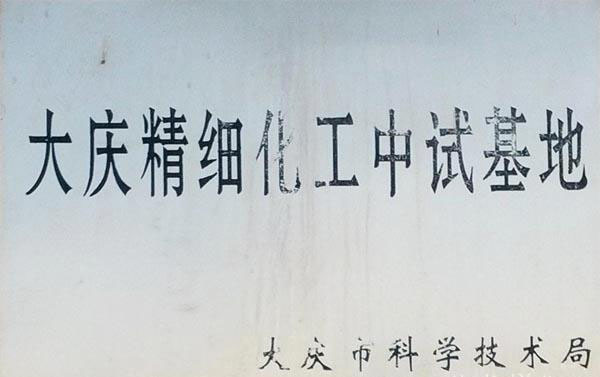 大庆精细化工中试基地
大庆市科学技术局